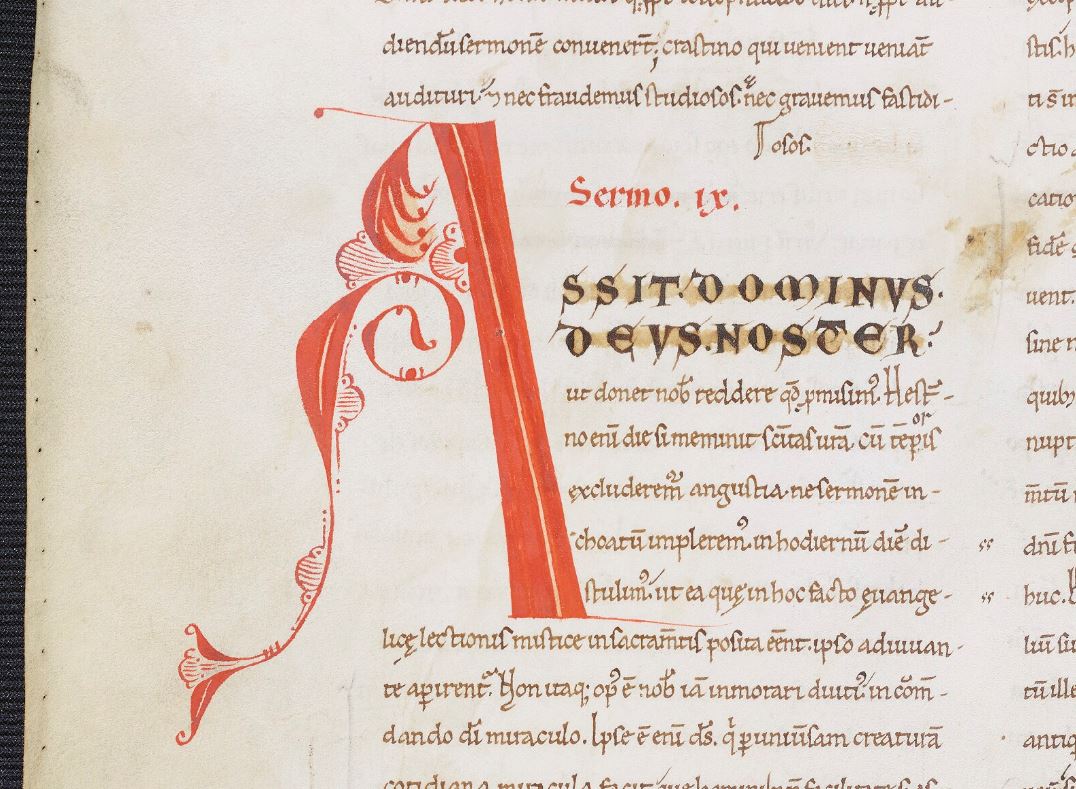 diendū sermonē convenert̄; crastino qui uenient ueniāt
audituri. nec fraudemus studiosos. nec grauemus fastidi-
osos.
Sermo. ıx.
A
SSIT. DOMINVS.
DEVS. NOSTER.
ut donet nob̄ reddere qđ ꝓmisim᷒. Hest̄-
no enī die si meminit sc̄itas ur̄a. cū tēporis
excluderem᷒ angustia. ne sermonē in-
choatū implerem᷒. in hodiernū diē di-
stulim᷒. ut ea quę in hoc facto ęuange-
licę lectionis mistice in sacram̄tis posita eēnt. ipso adiuuan-
te aperirent᷑. Non itaq; op᷒ ē nob̄ iā inmorari diuti᷒. in cōm̄-
dando dı̄ miraculo. Ipse ē enī d̄s. q̇ ꝑ uniūsam creaturā
cotidiana miracula facit
stis. h
ti s̄ in
ctio
catio
fidē
uent.
sine
quib;
nupt
m̄tū
dn̄i
huc.
liū
tū ille
antiq